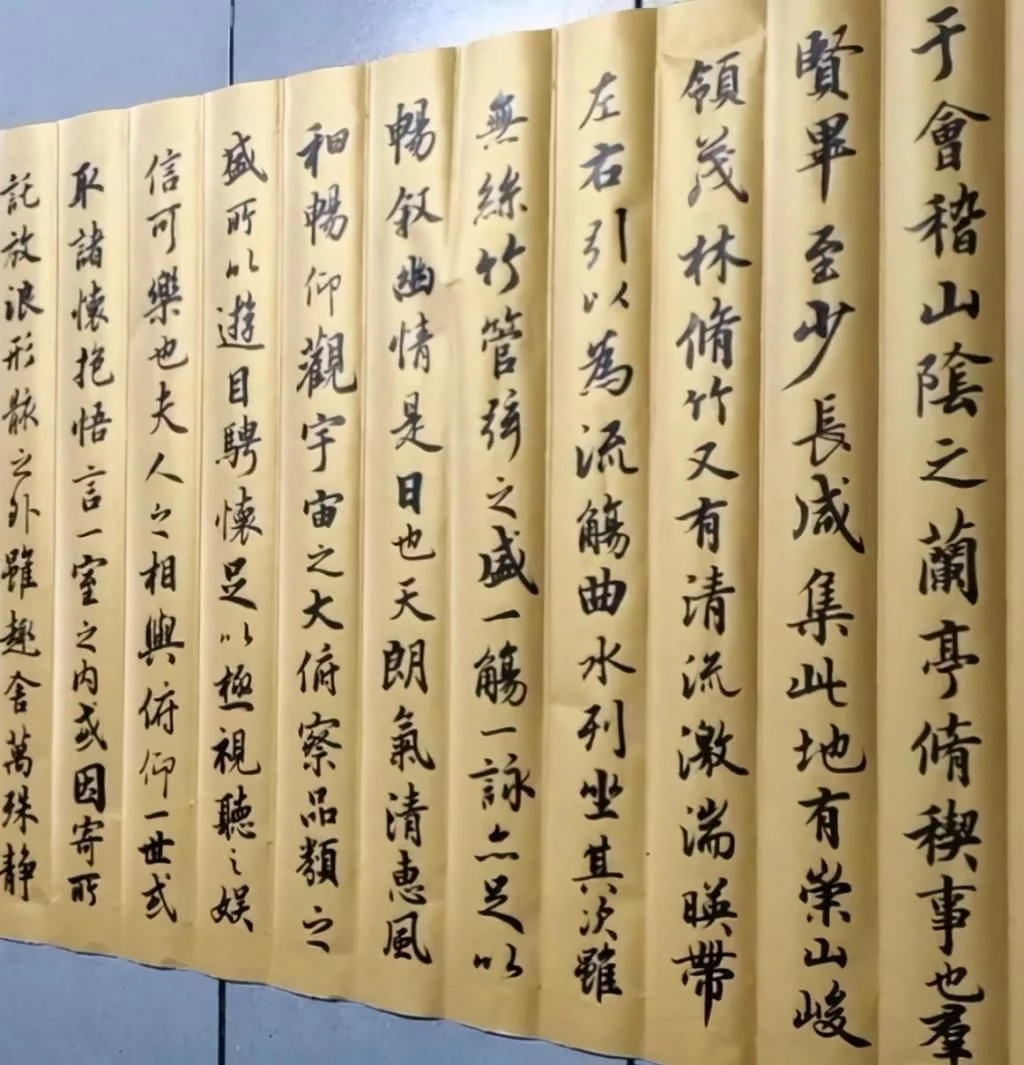 于會稽山陰之蘭亭脩稧事也羣
賢畢至少長咸集此地有崇山峻
領茂林脩竹又有清流激湍暎帶
左右引以為流觴曲水列坐其次雖
無絲竹管弦之盛一觴一詠亦足以
暢叙幽情是日也天朗氣清惠風
和暢仰觀宇宙之大俯察品類之
盛所以遊目騁懷足以極視聽之娱
信可樂也夫人之相與俯仰一世或
取諸懷抱悟言一室之内或因寄所
託放浪形骸之外雖趣舍萬殊静